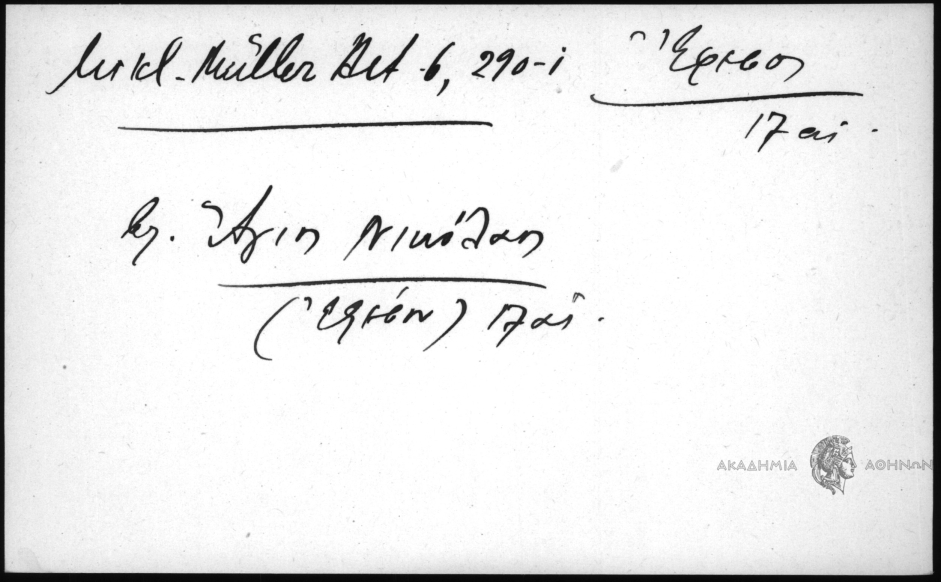 Mikl-Müller Act 6, 290-1
Ἔφεσος
17 αι.
Ἅγιος Νικόλαος
(Ἐφέσου) 17 αι.
ΑΚΑΔΗΜΙΑ ΑΘΗΝΩΝ